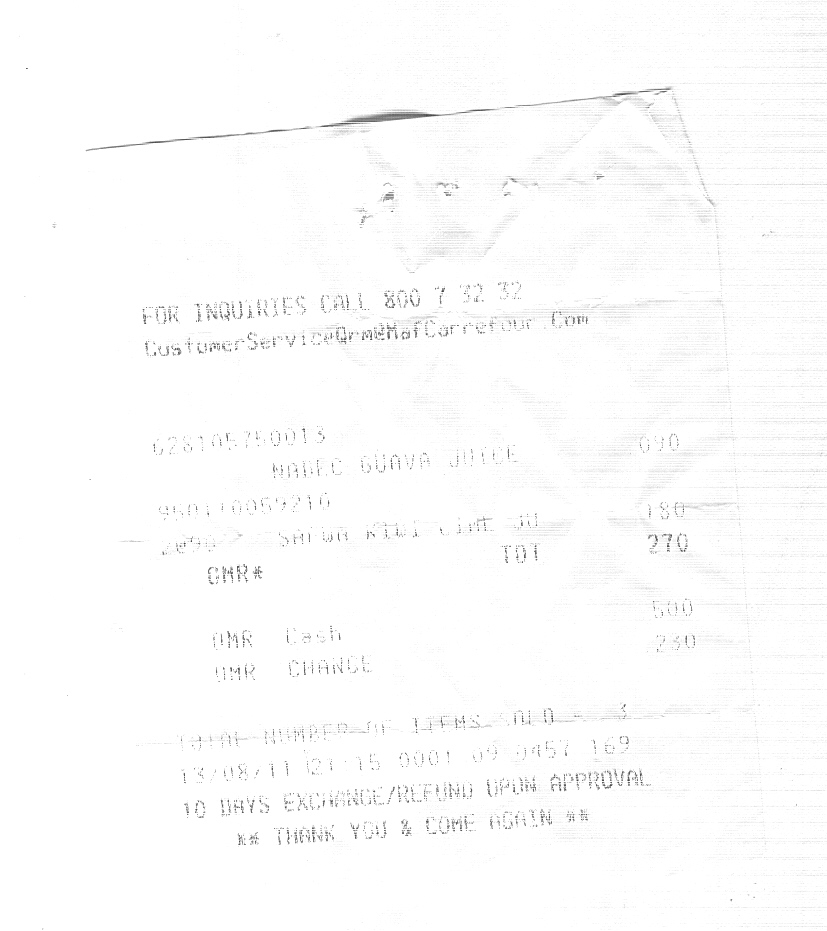 FOR INQUIRIES CALL 800 7 32 32
CustomerServiceQrm@MafCarrefour.Com
628105750013
NADEC GUAVA JUICE 090
2@90 SAFWA KIWI LIME JU 180
OMR* TOT 270
OMR Cash 500
OMR CHANGE .230
TOTAL NUMBER OF ITEMS SOLD = 3
13/08/11 21:15 0001 09 0457 169
10 DAYS EXCHANGE/REFUND UPON APPROVAL
** THANK YOU & COME AGAIN **